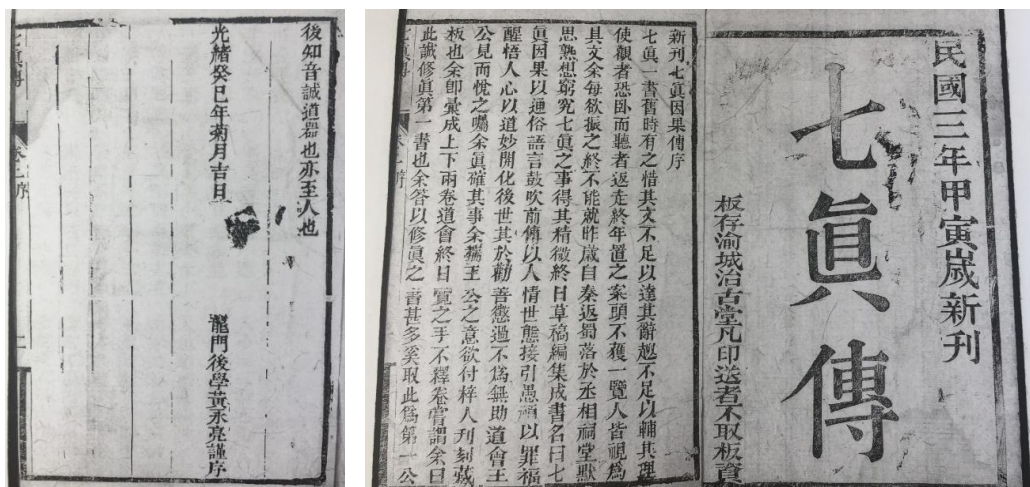 民國三年甲寅歲新刊
七眞傳
板存渝城治古堂凡印送者不取板資
新刊七眞因果傳序
七眞一書舊時有之惜其文不足以達其辭趣不足以輔其理
使觀者恐臥而聽者返走終年置之案頭不獲一覽人皆視爲
具文余每欲振之終不能就昨歲自秦返蜀落於丞相祠堂默
思熟想窮究七眞之事得其精微終日草稿編集成書名曰七
眞因果以通俗語言鼓吹前傳以人情世態接引愚頑以罪福
醒悟人心以道妙開化後世其於勸善懲過不爲無助道會王
公見而悅之囑余眞確其事余王公之意欲付梓人刊刻藏
板也余卽彙成上下兩卷道會終日覽之手不釋卷嘗謂余曰
此誠修眞第一書也余答以修眞之書甚多奚取此爲第一公
後知音誠道器也亦至人也
光緒癸巳年菊月吉旦
龍門後學黃永亮謹序